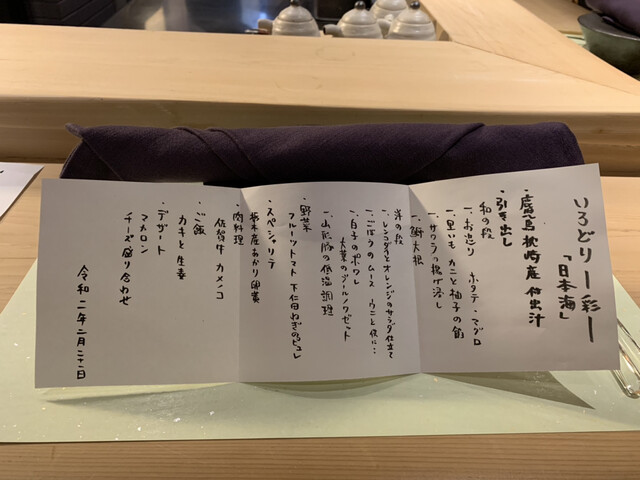 いろどりー彩ー
「日本海」
・鹿児島枕崎産付出汁
・引き出し
和の段
一.お造り ホタテ・マグロ
一.里いも カニと柚子の餡
一.サワラの揚げ浸し
一.鰤大根
洋の段
一.レンコダイとオレンジのサラダ仕立て
一.ごぼうのムース ウニと供に…
一.白子のポワレ
大葉のジュノベゼット
一.山形豚の低温調理
・野菜
フルーツトマト 下仁田ねぎのピュレ
・スペシャリテ
栃木産あかり田煮
・肉料理
佐賀牛 カメノコ
・ご飯
カキと生姜
・デザート
マカロン
チーズ盛り合わせ
令和二年二月二十二日